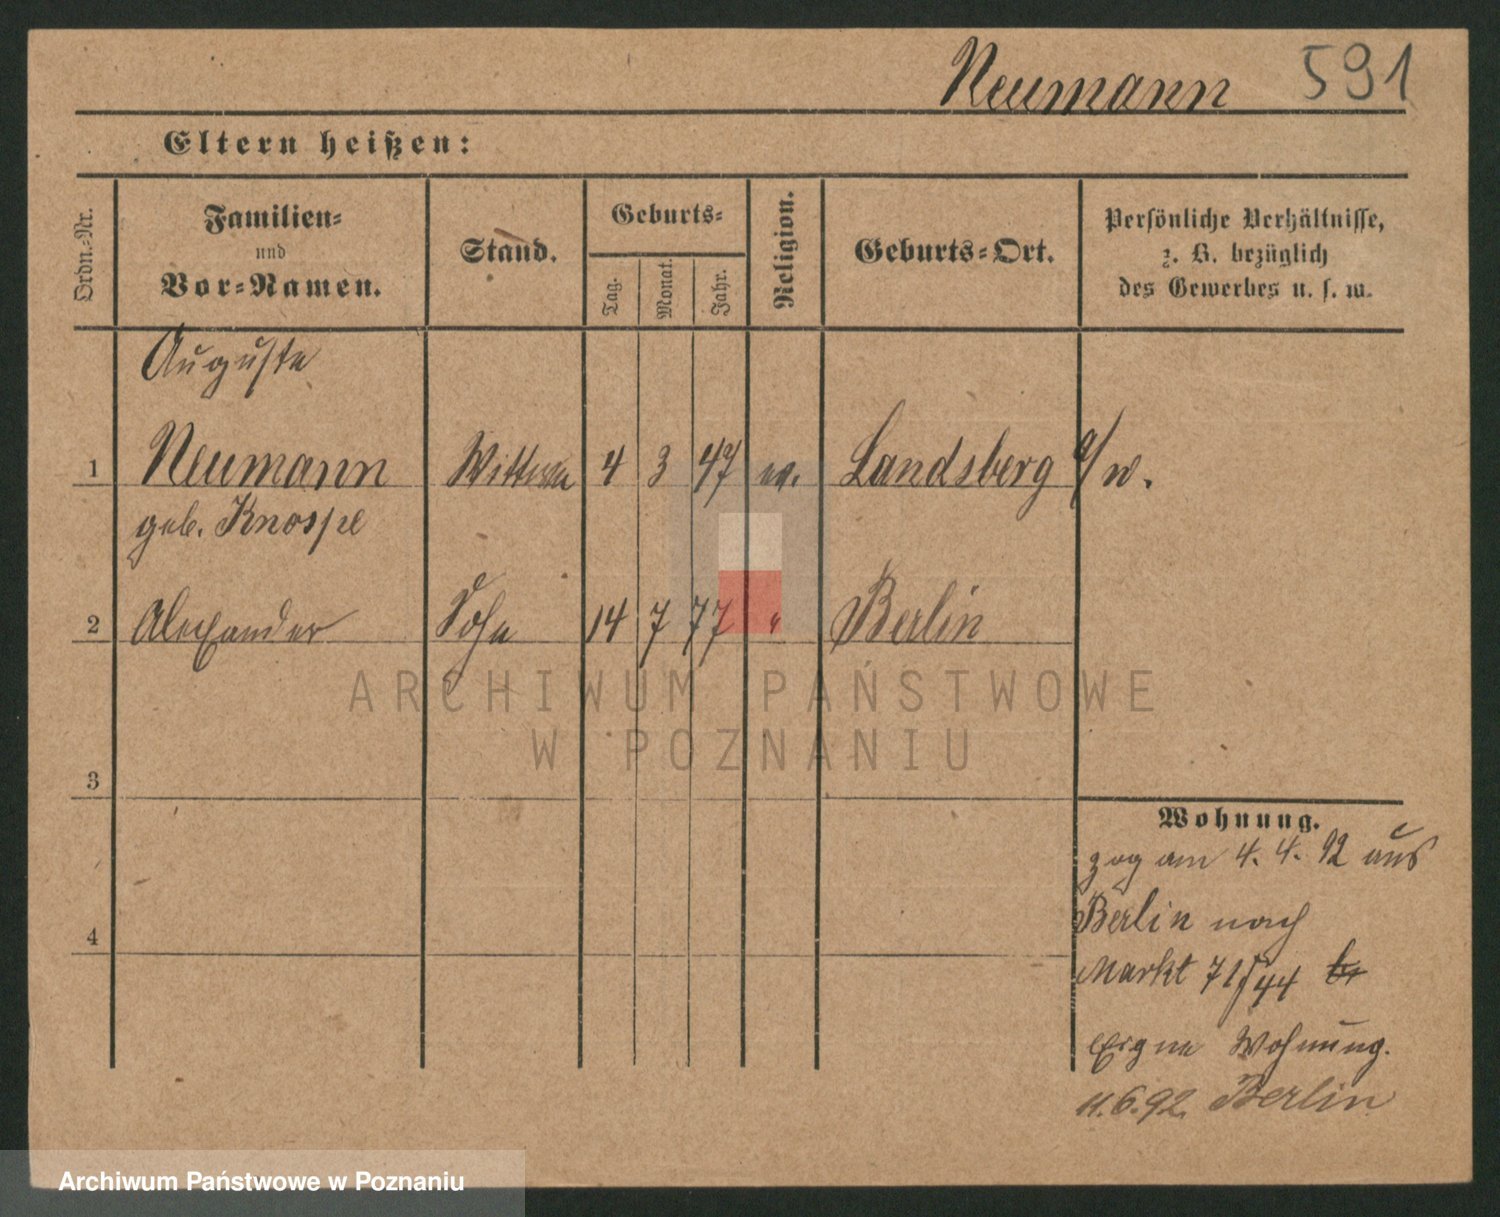 Neumann 591
Eltern heißen:
Ordn.-Nr.
Familien-
und
Vor-Namen.
Stand.
Geburts-
Tag.
Monat.
Jahr.
Religion.
Geburts-Ort.
Persönliche Verhältnisse,
z. B. bezüglich
des Gewerbes u. s. w.
Auguste
1 Neumann Wittwe 4 3 47 ev. Landsberg a/w.
geb. Knospe
2 Alexander Sohn 14 7 77 " Berlin
ARCHIWUM PAŃSTWOWE
W POZNANIU
3
Wohnung.
zog am 4. 4. 92 aus
4
Berlin nach
Markt 71/44
Eigne Wohnung.
11.6.92. Berlin
Archiwum Państwowe w Poznaniu